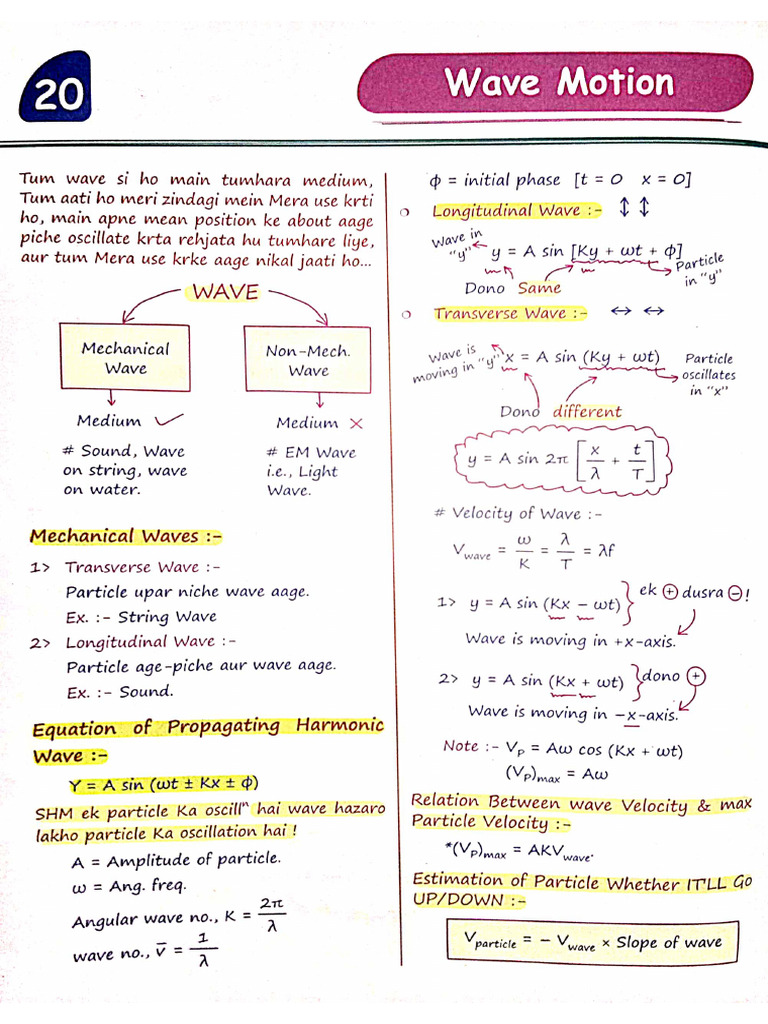 20
Wave Motion
Tum wave si ho main tumhara medium,
Tum aati ho meri zindagi mein Mera use krti
ho, main apne mean position ke about aage
piche oscillate krta rehjata hu tumhare liye,
aur tum Mera use krke aage nikal jaati ho...
WAVE
Mechanical
Wave
Non-Mech.
Wave
Medium ✓
Medium ✗
# Sound, Wave
on string, wave
on water.
# EM Wave
i.e., Light
Wave.
Mechanical Waves :-
1> Transverse Wave :-
Particle upar niche wave aage.
Ex. :- String Wave
2> Longitudinal Wave :-
Particle age-piche aur wave aage.
Ex. :- Sound.
Equation of Propagating Harmonic
Wave :-
Y = A sin (ωt ± Kx ± ϕ)
SHM ek particle Ka oscillⁿ hai wave hazaro
lakho particle Ka oscillation hai !
A = Amplitude of particle.
ω = Ang. freq.
Angular wave no., K = 2π/λ
wave no., v̄ = 1/λ
ϕ = initial phase [t = 0 x = 0]
○ Longitudinal Wave :- ↕ ↕
Wave in
"y"
y = A sin [Ky + ωt + ϕ]
Particle
in "y"
Dono Same
○ Transverse Wave :- ↔ ↔
Wave is
moving in "y"
x = A sin (Ky + ωt)
Particle
oscillates
in "x"
Dono different
y = A sin 2π [x/λ + t/T]
# Velocity of Wave :-
V_wave = ω/K = λ/T = λf
1> y = A sin (Kx − ωt) } ek ⊕ dusra ⊖ !
Wave is moving in +x-axis.
2> y = A sin (Kx + ωt) } dono ⊕
Wave is moving in −x-axis.
Note :- V_P = Aω cos (Kx + ωt)
(V_P)_max = Aω
Relation Between wave Velocity & max
Particle Velocity :-
*(V_P)_max = AKV_wave.
Estimation of Particle Whether IT'LL Go
UP/DOWN :-
V_particle = − V_wave × Slope of wave